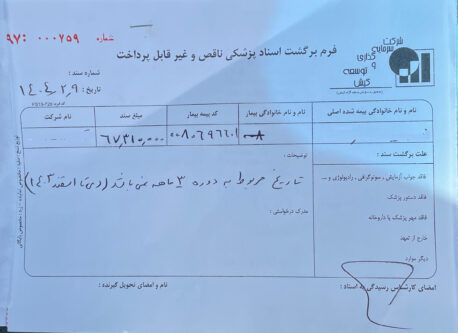 شماره ۹۷: ۰۰۰۷۵۹
شرکت
سرمایه
گذاری
و
توسعه
کیش
فرم برگشت اسناد پزشکی ناقص و غیر قابل پرداخت
شماره سند :
تاریخ : ۱۴۰۴،۲،۹
نام و نام خانوادگی بیمه شده اصلی
نام و نام خانوادگی بیمار
کد بیمه بیمار
مبلغ سند
نام شرکت
۶۷,۳۱۰,۰۰۰
علت برگشت سند :
توضیحات :
فاقد جواب آزمایش , سونوگرافی , رادیولوژی و ...
تاریخ مربوط به دوره ۳ ماهه نمی باشد (دی تا اسفند ۱۴۰۳)
فاقد دستور پزشک
فاقد مهر پزشک یا داروخانه
مدرک درخواستی :
خارج از تعهد
دیگر موارد
امضای کارشناس رسیدگی به اسناد :
نام و امضای تحویل گیرنده :